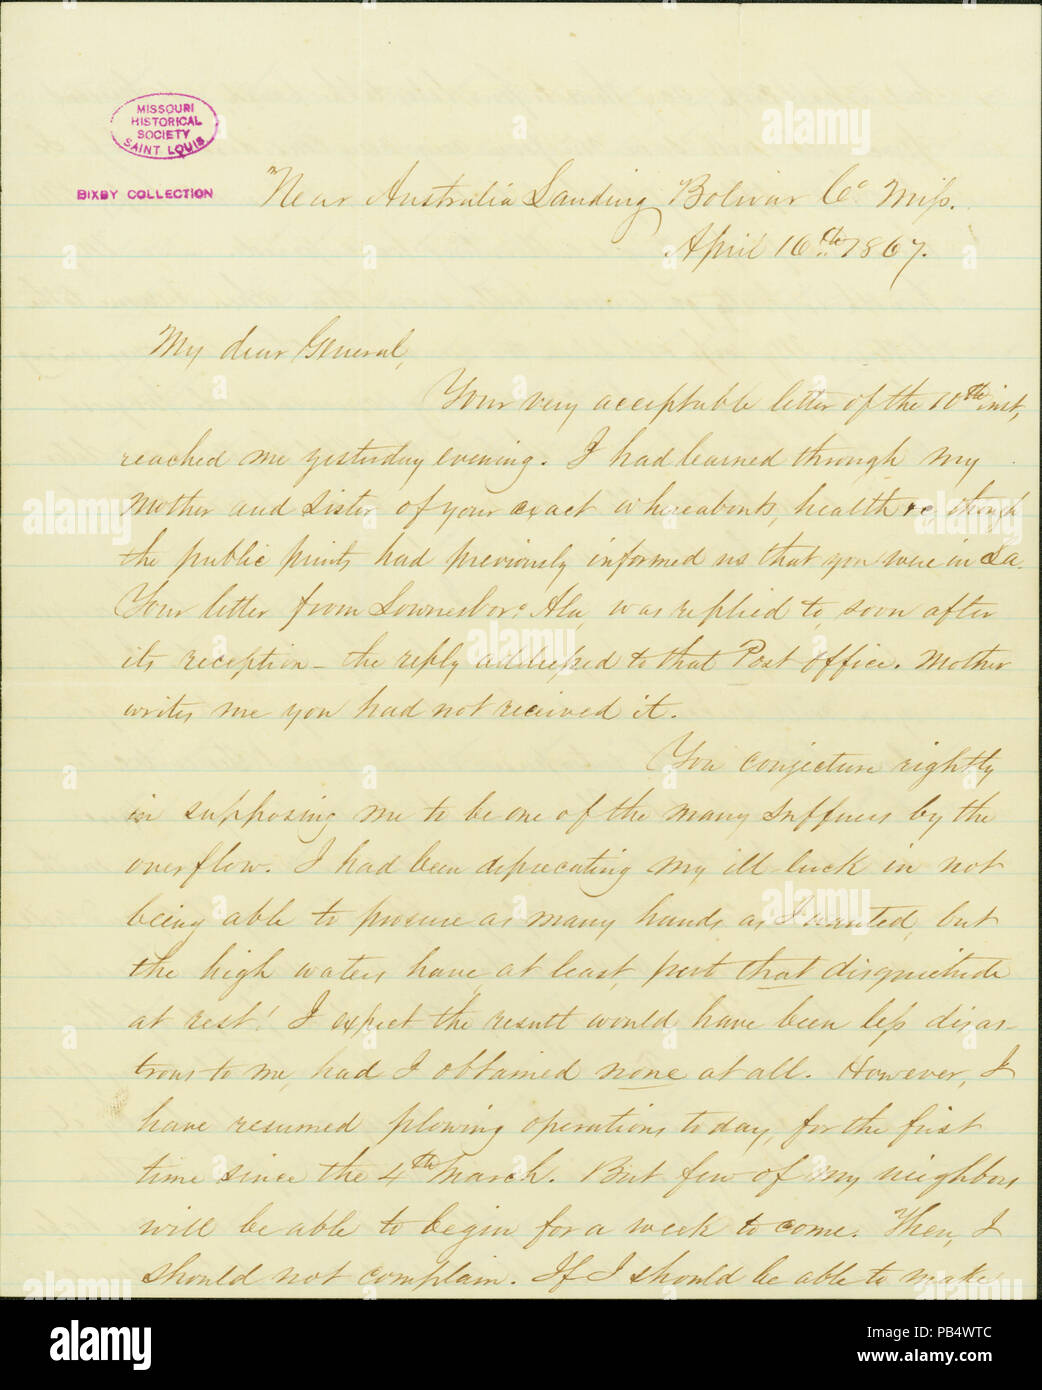 MISSOURI
HISTORICAL
SOCIETY
SAINT LOUIS
BIXBY COLLECTION
Near Australia Landing Bolivar Co Miss.
April 16th 1867.
My dear General,
Your very acceptable letter of the 10th inst,
reached me yesterday evening. I had learned through my
Mother and Sister of your exact whereabouts, health &c, though
the public prints had previously informed us that you were in La.
Your letter from Lownesboro Ala, was replied to, soon after
its reception - the reply addressed to that Post Office. Mother
writes me you had not received it.
You conjecture rightly
in supposing me to be one of the many sufferers by the
overflow. I had been deprecating my ill luck in not
being able to procure as many hands as I wanted, but
the high waters have, at least, put that disquietude
at rest! I expect the result would have been less disas-
trous to me, had I obtained none at all. However, I
have resumed plowing operations today, for the first
time since the 4th March. But few of my neighbors
will be able to begin for a week to come. Then, I
should not complain. If I should be able to make
alamy
Image ID: PB4WTC
www.alamy.com